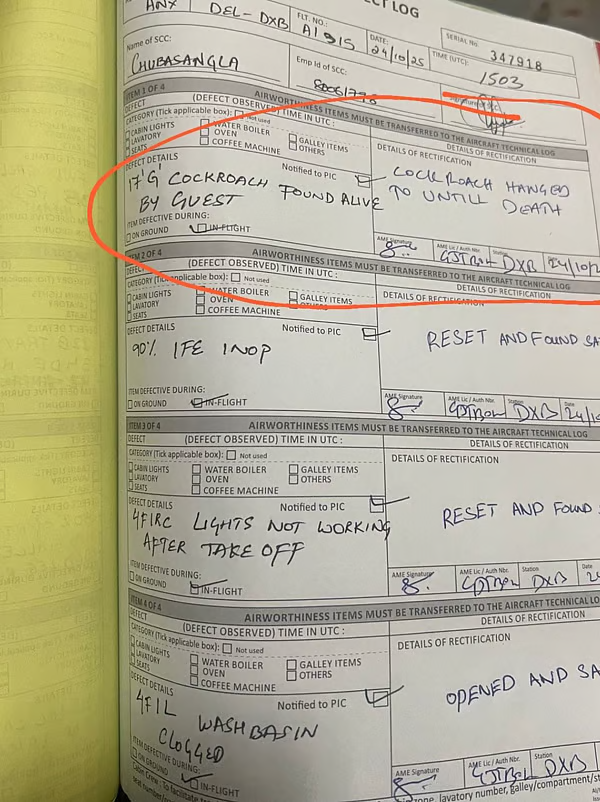 CT LOG
ANX DEL-DXB FLT. NO.: AI 915 DATE: 24/10/25 SERIAL No. 347918
TIME (UTC): 1503
Name of SCC: CHUBASANGLA Emp Id of SCC:
ITEM 1 OF 4 AIRWORTHINESS ITEMS MUST BE TRANSFERRED TO THE AIRCRAFT TECHNICAL LOG
DEFECT (DEFECT OBSERVED) TIME IN UTC : DETAILS OF RECTIFICATION
CATEGORY (Tick applicable box): Not used DETAILS OF RECTIFICATION
CABIN LIGHTS WATER BOILER GALLEY ITEMS
LAVATORY OVEN OTHERS
SEATS COFFEE MACHINE
DEFECT DETAILS Notified to PIC
17'G' COCKROACH FOUND ALIVE
BY GUEST
COCKROACH HANGED
TO UNTILL DEATH
ITEM DEFECTIVE DURING:
ON GROUND IN-FLIGHT
AME Signature AME Lic / Auth Nbr. Station
DXB 24/10/2
ITEM 2 OF 4 AIRWORTHINESS ITEMS MUST BE TRANSFERRED TO THE AIRCRAFT TECHNICAL LOG
DEFECT (DEFECT OBSERVED) TIME IN UTC : DETAILS OF RECTIFICATION
CATEGORY (Tick applicable box): Not used DETAILS OF RECTIFICATION
CABIN LIGHTS WATER BOILER GALLEY ITEMS
LAVATORY OVEN OTHERS
SEATS COFFEE MACHINE
DEFECT DETAILS Notified to PIC
90% IFE INOP
RESET AND FOUND SA
ITEM DEFECTIVE DURING:
ON GROUND IN-FLIGHT
AME Signature AME Lic / Auth Nbr. Station Date
DXB 24/10
ITEM 3 OF 4 AIRWORTHINESS ITEMS MUST BE TRANSFERRED TO THE AIRCRAFT TECHNICAL LOG
DEFECT (DEFECT OBSERVED) TIME IN UTC : DETAILS OF RECTIFICATION
CATEGORY (Tick applicable box): Not used DETAILS OF RECTIFICATION
CABIN LIGHTS WATER BOILER GALLEY ITEMS
LAVATORY OVEN OTHERS
SEATS COFFEE MACHINE
DEFECT DETAILS Notified to PIC
4FIRC LIGHTS NOT WORKING
AFTER TAKE OFF
RESET AND FOUND
ITEM DEFECTIVE DURING:
ON GROUND IN-FLIGHT
AME Signature AME Lic / Auth Nbr. Station Date
DXB
ITEM 4 OF 4 AIRWORTHINESS ITEMS MUST BE TRANSFERRED TO THE AIRCRAFT TECHNICAL LO
DEFECT (DEFECT OBSERVED) TIME IN UTC : DETAILS OF RECTIFICATION
CATEGORY (Tick applicable box): Not used DETAILS OF RECTIFICATION
CABIN LIGHTS WATER BOILER GALLEY ITEMS
LAVATORY OVEN OTHERS
SEATS COFFEE MACHINE
DEFECT DETAILS Notified to PIC
4FIL WASHBASIN
CLOGGED
OPENED AND SA
ITEM DEFECTIVE DURING:
ON GROUND IN-FLIGHT
AME Signature AME Lic / Auth Nbr. Station Date
DXB
Cabin Crew: To facilitate
zone, lavatory number, galley/compartment/st
seat number/